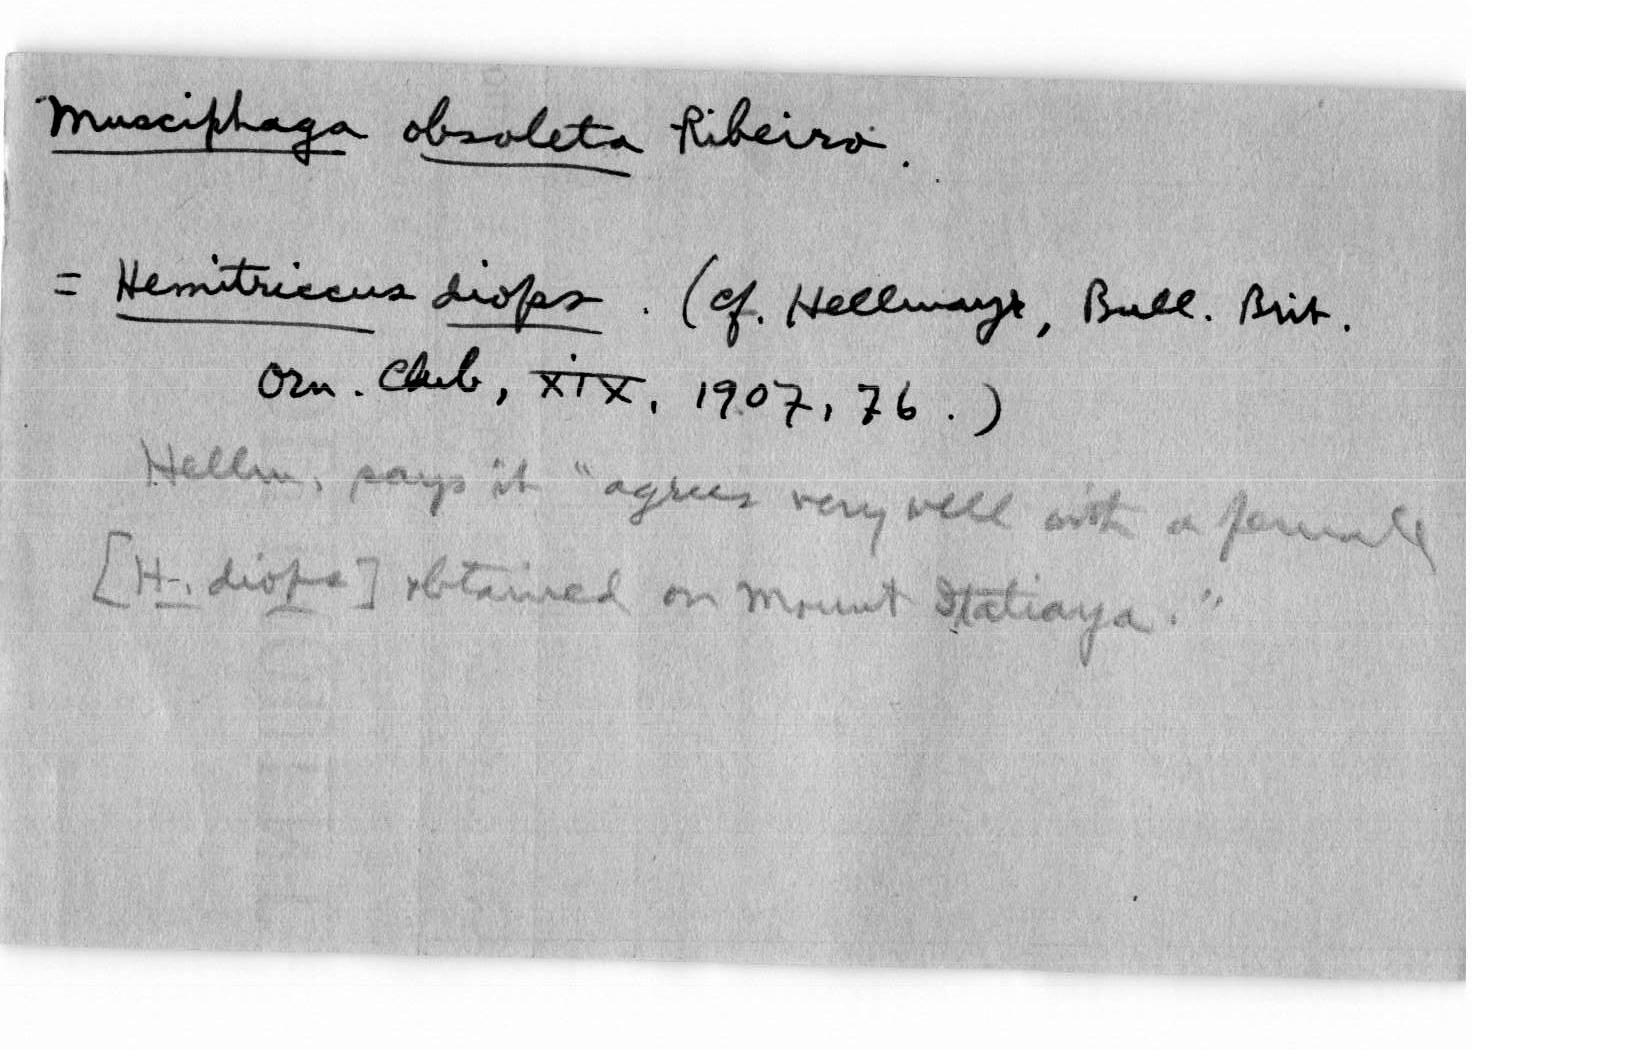 Musciphaga obsoleta Ribeiro.
= Hemitriccus diops. (cf. Hellmayr, Bull. Brit.
Orn. Club, XIX, 1907, 76.)
Hellm. says it "agrees very well with a female
[H. diops] obtained on Mount Itatiaya."